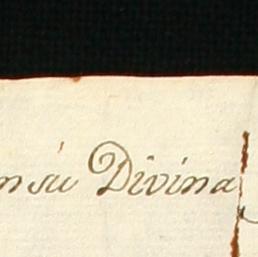 n su Divina